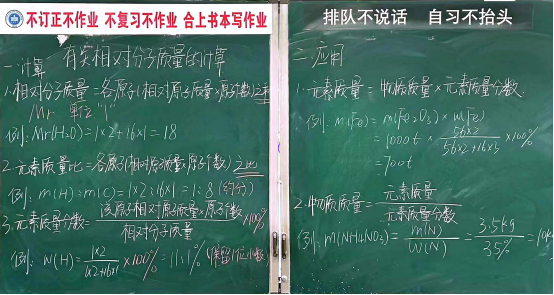 不订正不作业 不复习不作业 合上书本写作业
排队不说话 自习不抬头
有关相对分子质量的计算
一.计算
1.相对分子质量=各原子(相对原子质量×原子个数)之和
Mr 单位"1"
例:Mr(H₂O)=1×2+16×1=18
2.元素质量比=各原子(相对原子质量×原子个数)之比
例:m(H):m(O)=1×2:16×1=1:8(约分)
3.元素质量分数=该原子相对原子质量×原子个数/相对分子质量×100%
例:W(H)=1×2/1×2+16×1×100%=11.1%(保留1位小数)
二.应用
1.元素质量=物质质量×元素质量分数
例:m(Fe)=m(Fe₂O₃)×W(Fe)
=1000t×56×2/56×2+16×3×100%
=700t
2.物质质量=元素质量/元素质量分数
例:m(NH₄NO₃)=m(N)/W(N)=3.5kg/35%=10kg